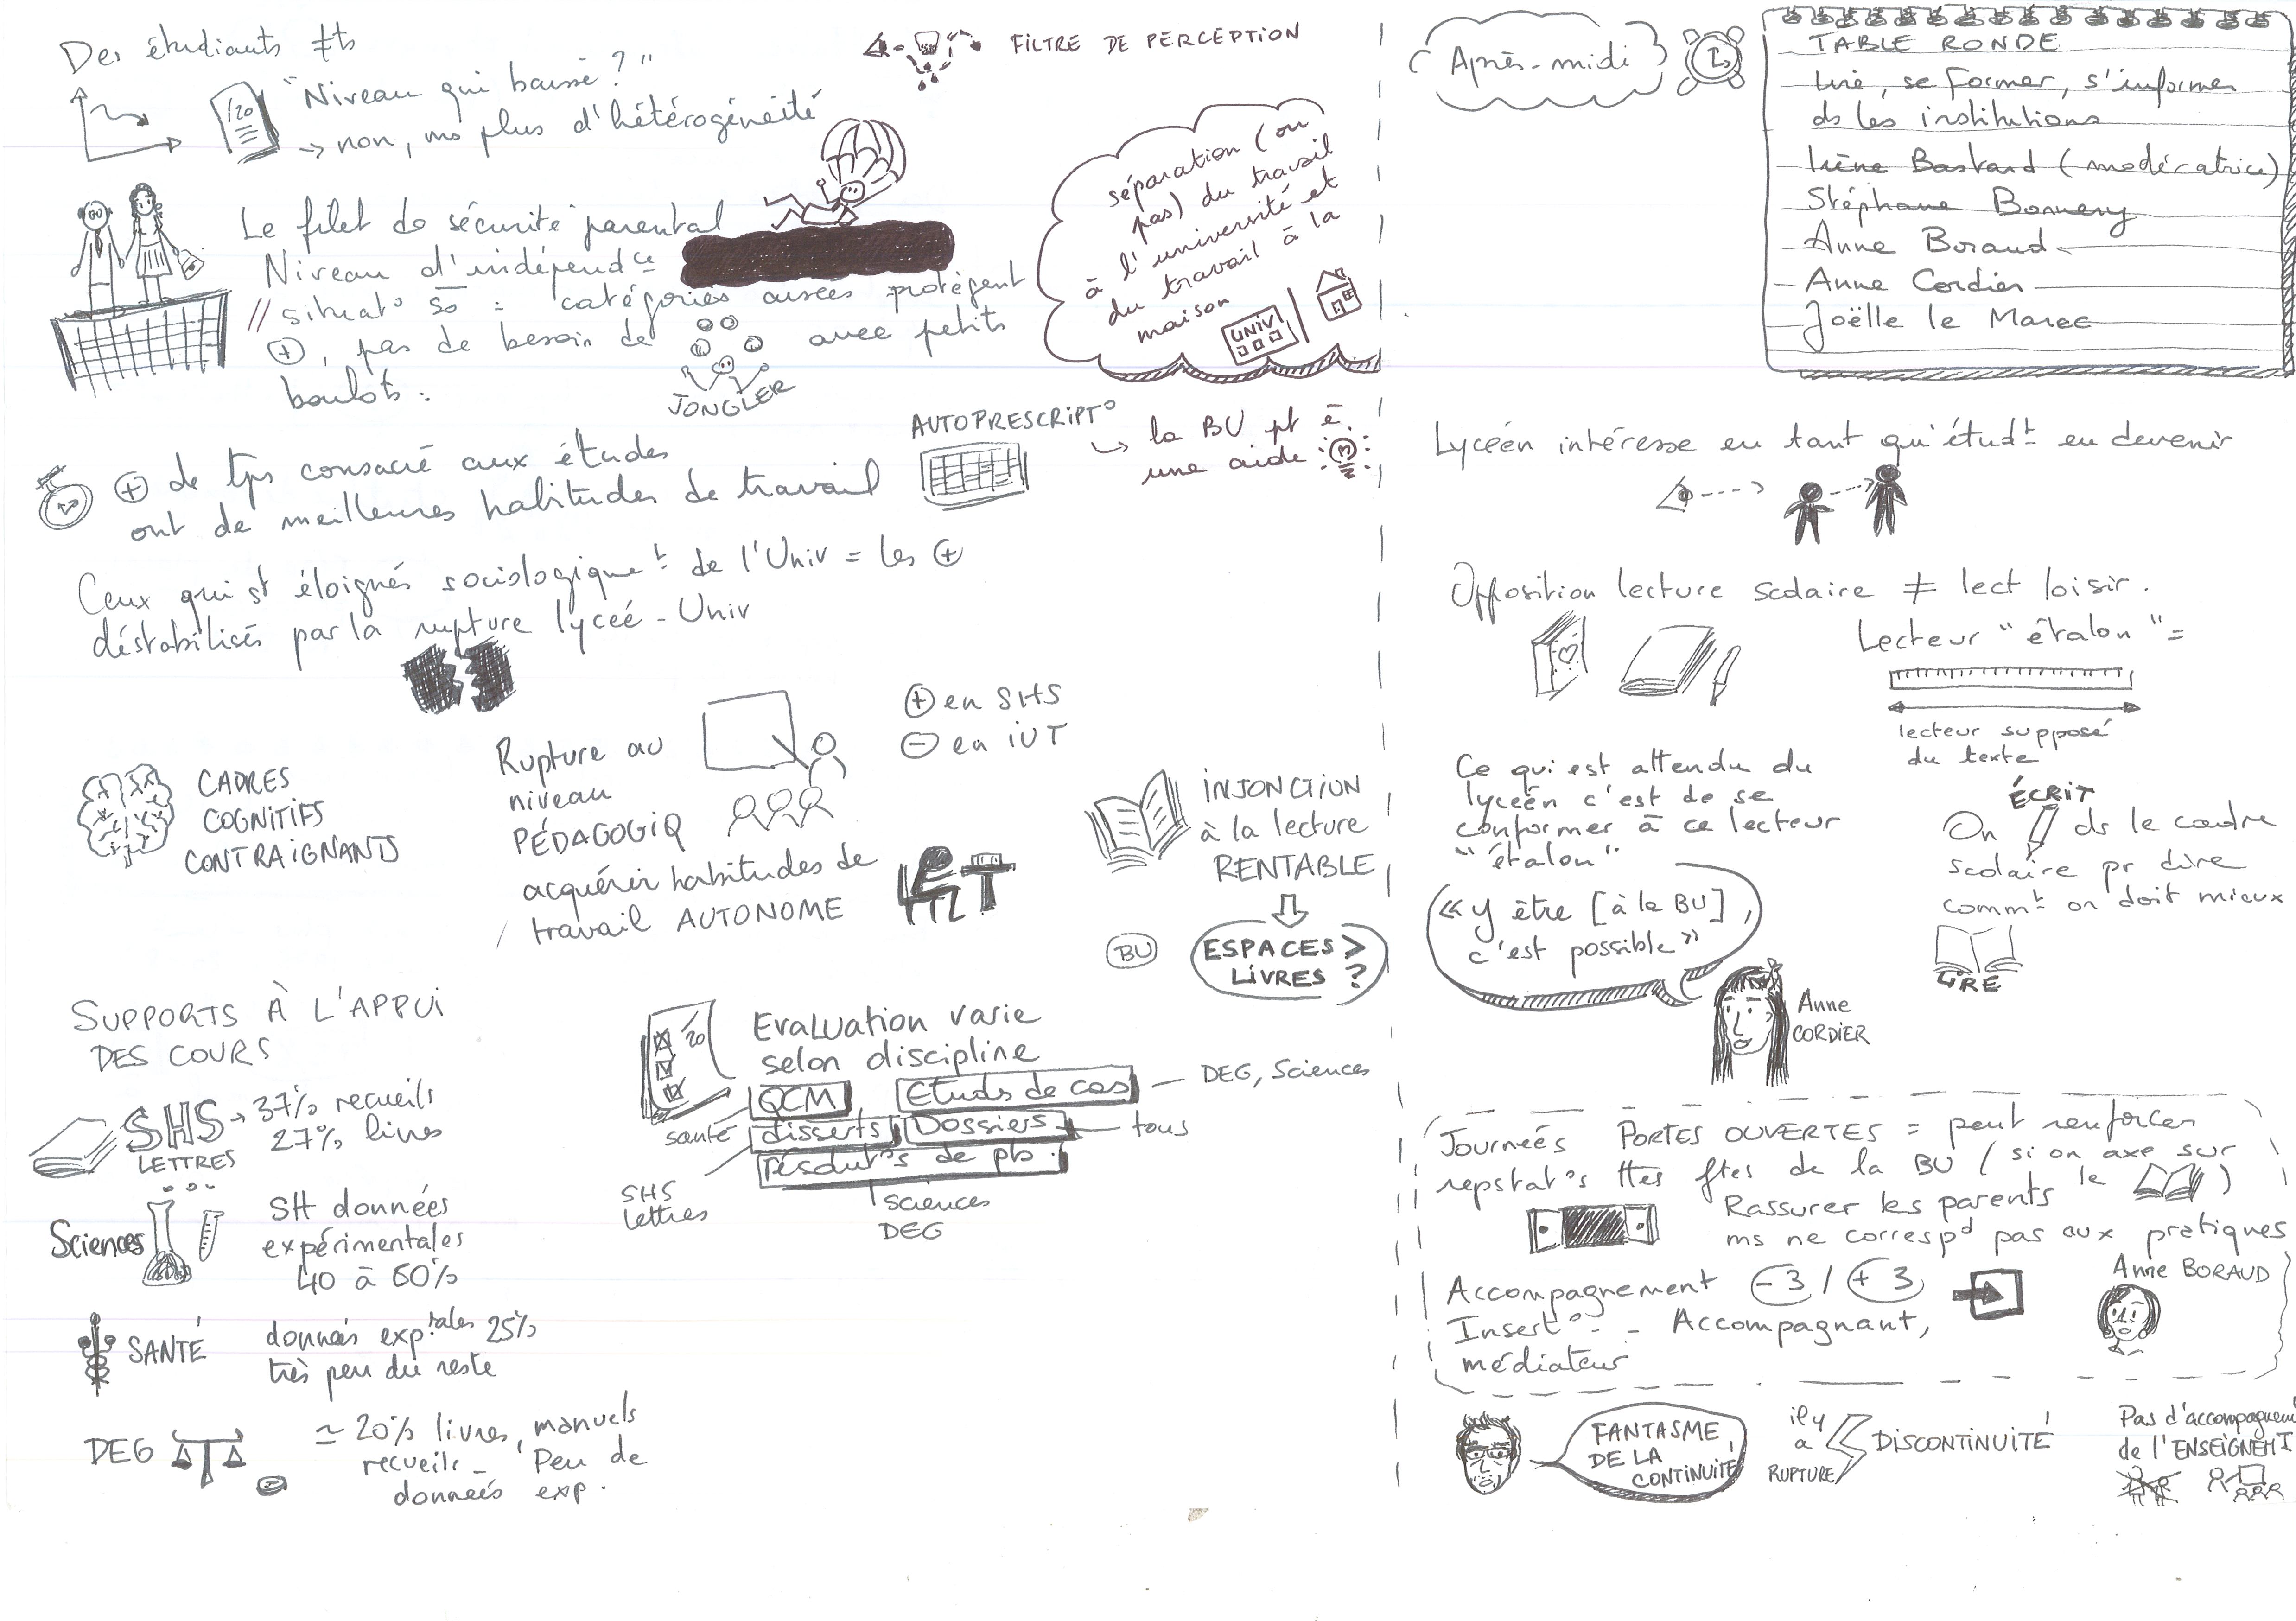 Des étudiants ≠ts
"Niveau qui baisse ?"
/20
→ non, ms plus d'hétérogénéité
FILTRE DE PERCEPTION
Le filet de sécurité parental
Niveau d'indépendce
// situato so = catégories aisées protègent
⊕, pas de besoin de
JONGLER
avec petits
boulots.
séparation (ou
pas) du travail
à l'université et
du travail à la
maison
UNIV
⊕ de tps consacré aux études
ont de meilleures habitudes de travail
AUTOPRESCRIPTo
↳ la BU pt ê
une aide
Ceux qui st éloignés sociologiquet de l'Univ = les ⊕
déstabilisés par la rupture lycée - Univ
CADRES
COGNITIFS
CONTRAIGNANTS
Rupture au
niveau
PÉDAGOGIQ
acquérir habitudes de
travail AUTONOME
⊕ en SHS
⊖ en IUT
INJONCTION
à la lecture
RENTABLE
BU
ESPACES >
LIVRES ?
SUPPORTS À L'APPUI
DES COURS
SHS → 37% recueils
27% livres
LETTRES
Sciences
SH données
expérimentales
40 à 60%
SANTÉ
données exp.tales 25%
très peu du reste
DEG
≃ 20% livres, manuels
recueils - Peu de
données exp.
/20
Evaluation varie
selon discipline
QCM
Etuds de cas
DEG, Sciences
santé
disserts
Dossiers
tous
résoluto's de pb.
SHS
Lettres
Sciences
DEG
Après-midi
TABLE RONDE
Lire, se former, s'informer
ds les institutions
Irène Bastard (modératrice)
Stéphane Bonnery
Anne Boraud
Anne Cordier
Joëlle le Marec
Lycéen intéresse en tant qu'étudt en devenir
Opposition lecture scolaire ≠ lect loisir.
Lecteur "étalon" =
lecteur supposé
du texte
Ce qui est attendu du
lycéen c'est de se
conformer à ce lecteur
"étalon".
ÉCRIT
On ds le cadre
scolaire pr dire
commt on doit mieux
LIRE
« y être [à la BU],
c'est possible »
Anne
CORDIER
Journées PORTES OUVERTES = peut renforcer
repstato's ttes ftes de la BU (si on axe sur
le )
Rassurer les parents
ms ne correspd pas aux pratiques
Accompagnement -3 / +3
Inserto - - Accompagnant,
médiateur
Anne BORAUD
FANTASME
DE LA
CONTINUITÉ
il y
a
RUPTURE
DISCONTINUITÉ
Pas d'accompagnem
de l'ENSEIGNEMT